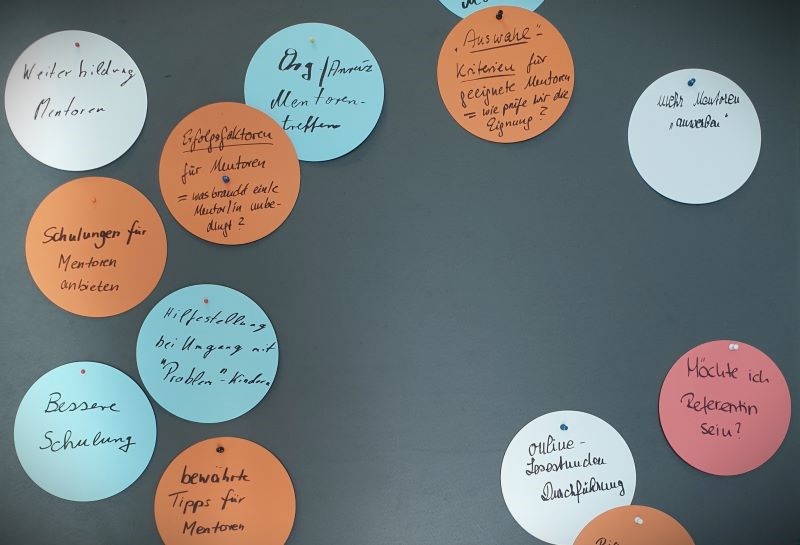 Weiterbildung
Mentoren
Org/Anreiz
Mentoren-
treffen
Erfolgsfaktoren
für Mentoren
= was braucht ein/e
Mentor/in unbe-
dingt?
Schulungen für
Mentoren
anbieten
Hilfestellung
bei Umgang mit
"Problem"-Kindern
Bessere
Schulung
bewährte
Tipps für
Mentoren
„Auswahl"-
Kriterien für
geeignete Mentoren
= wie prüfe wir die
Eignung?
mehr Mentoren
„anwerben"
Möchte ich
Referentin
sein?
online-
Lesestunden
Durchführung